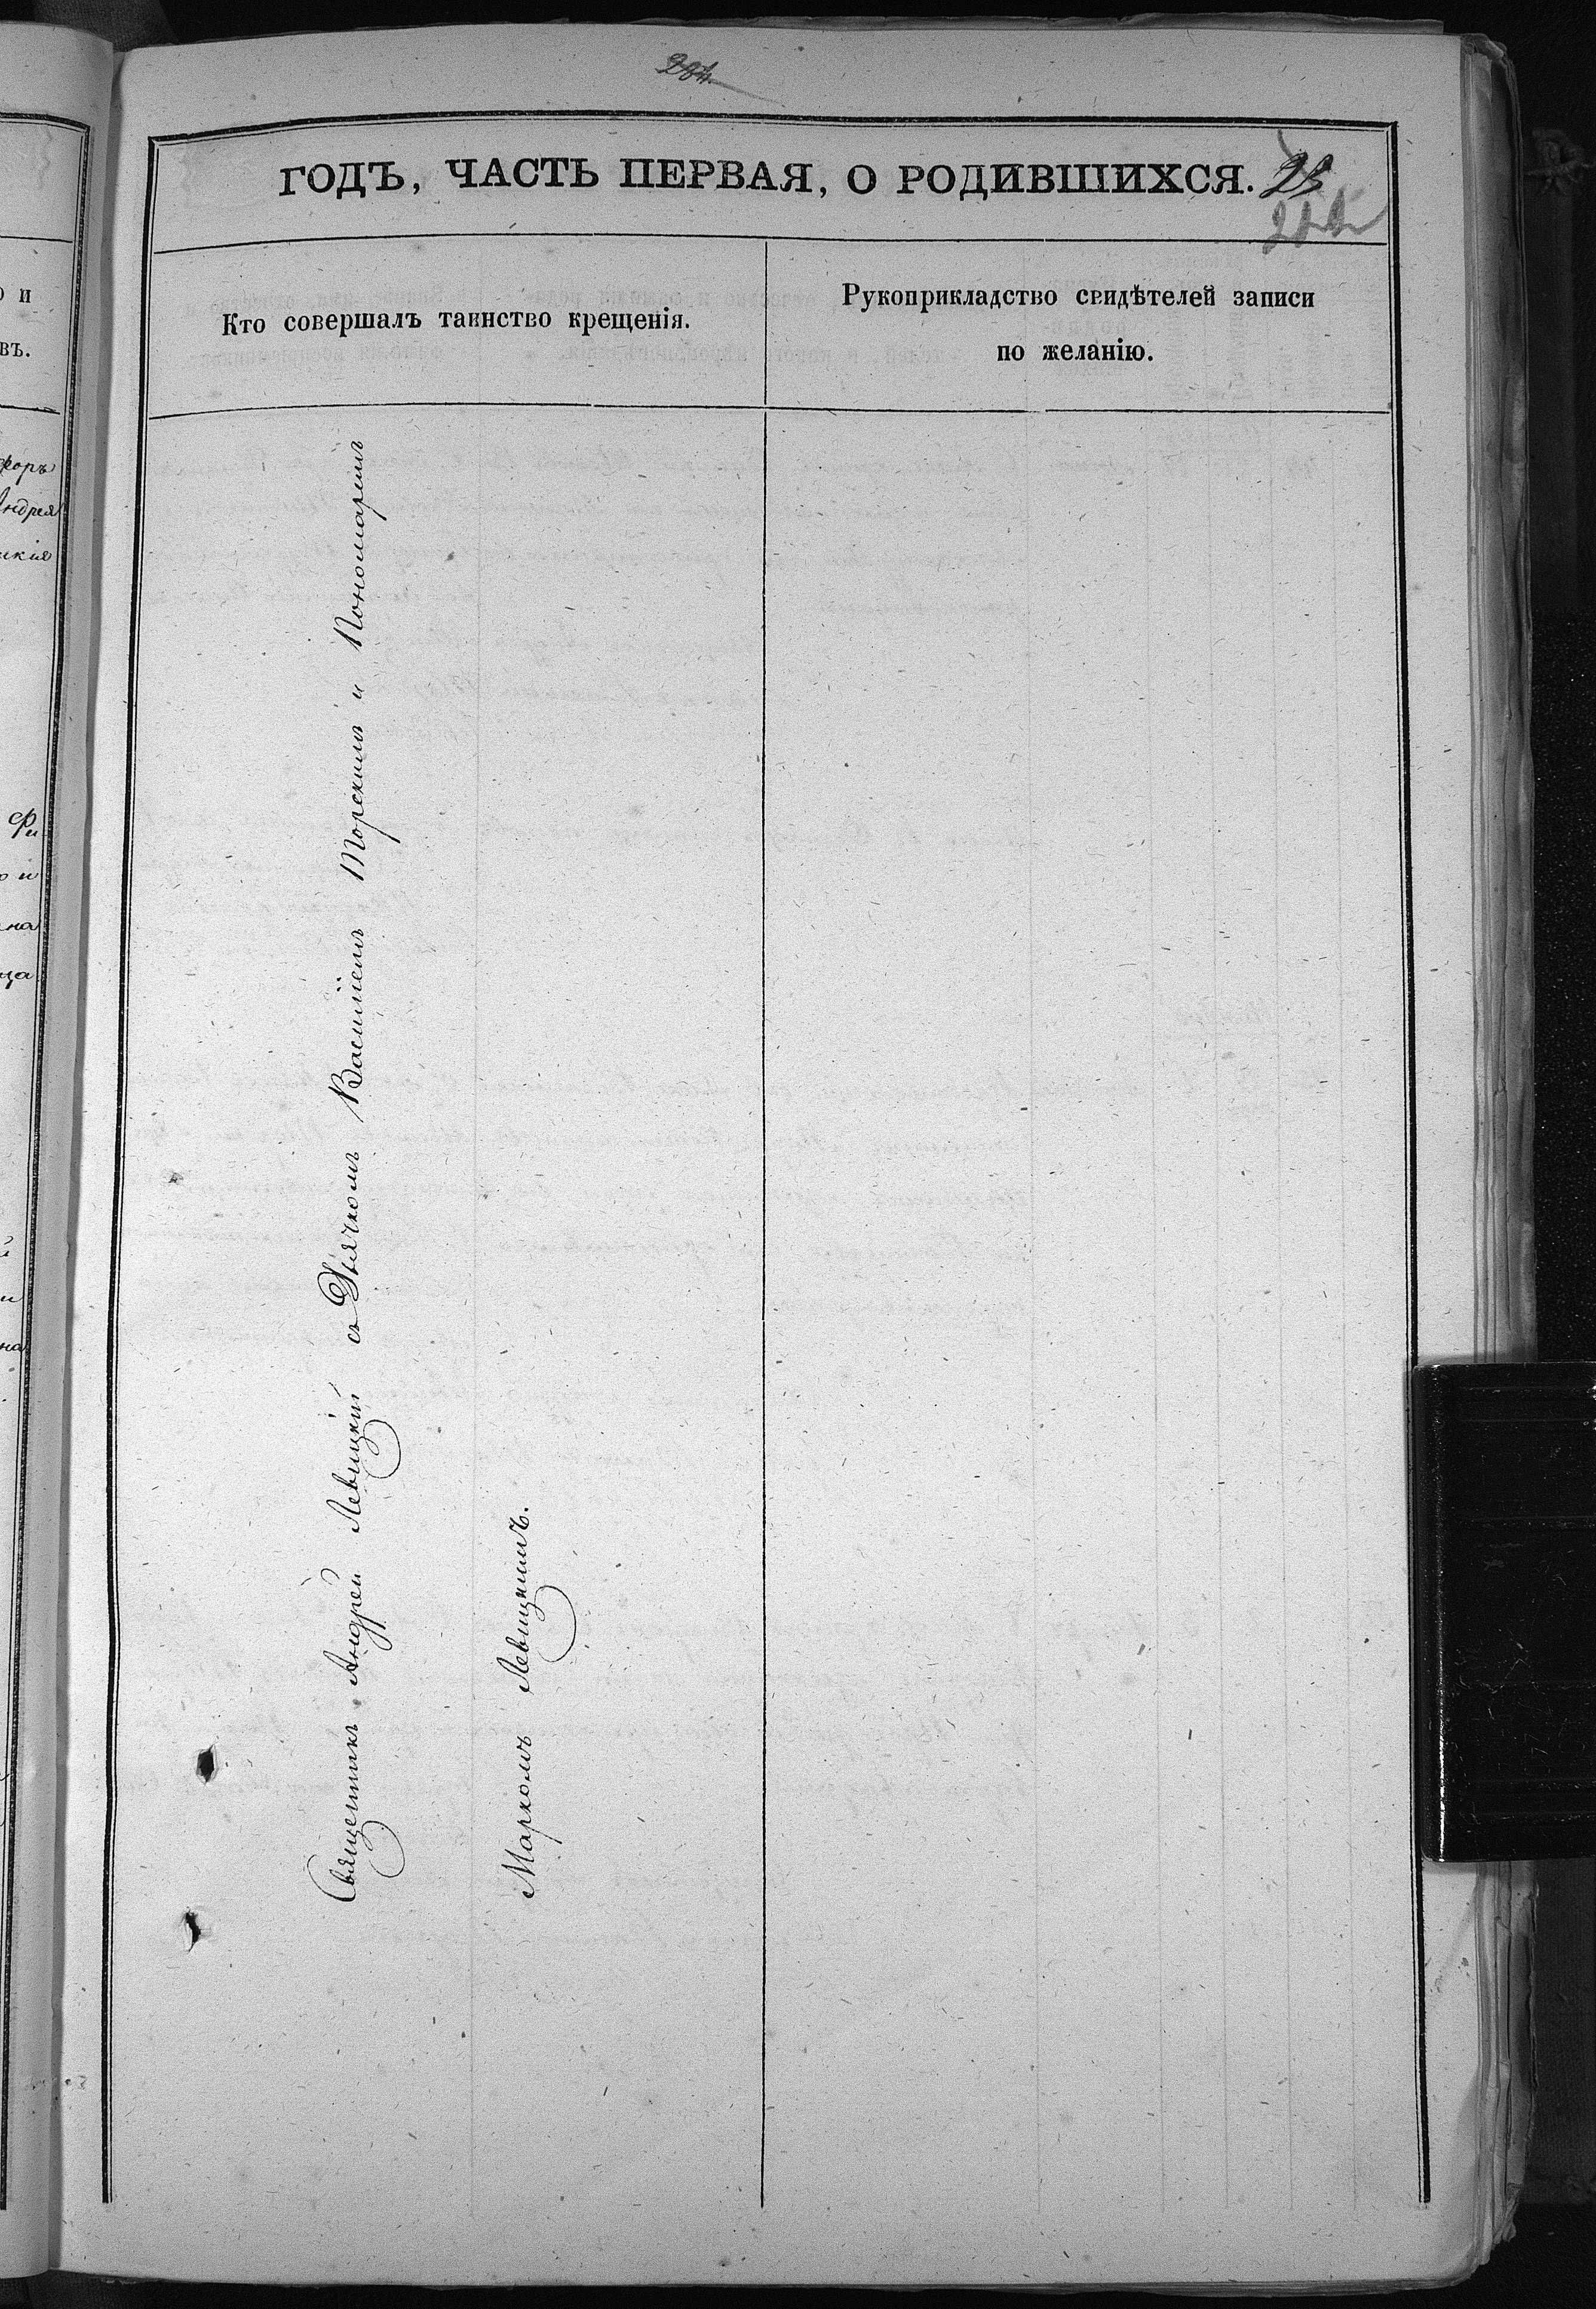 ГОДЪ, ЧАСТЬ ПЕРВАЯ, О РОДИВШИХСЯ. 23
Кто совершалъ таинство крещенія.
Рукоприкладство свидѣтелей записи
по желанію.
Священникъ Андрей Левицкій съ Дьячкомъ Василіемъ Торскимъ и Пономаремъ
Маркомъ Левицкимъ.
о и
въ.
форъ
Андрея
Фи
о и
на
ца
и
на